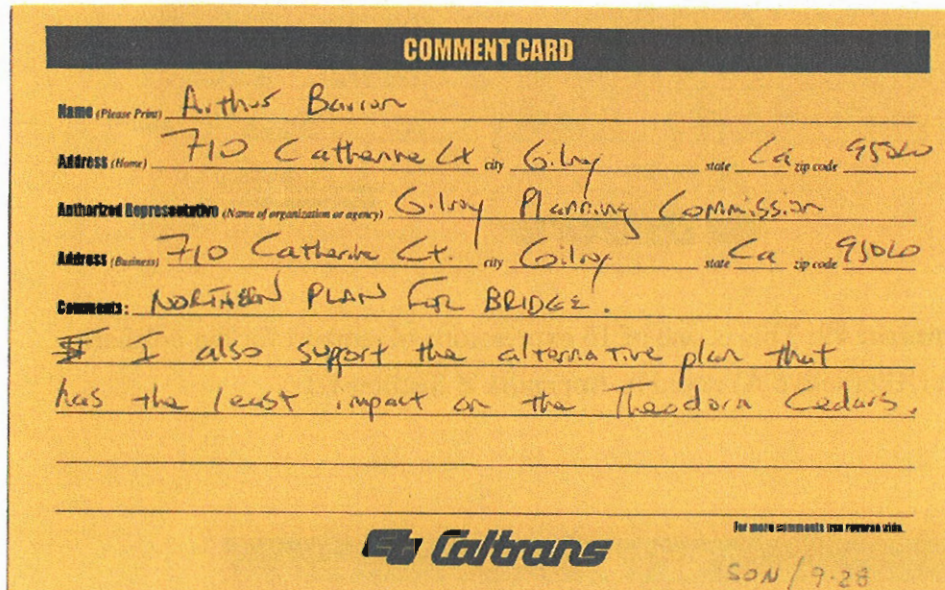 COMMENT CARD
Name (Please Print) Arthur Barron
Address (Home) 710 Catherine Ct city Gilroy state Ca zip code 95020
Authorized Representative (Name of organization or agency) Gilroy Planning Commission
Address (Business) 710 Catherine Ct. city Gilroy state Ca zip code 95020
Comments: NORTHERN PLAN FOR BRIDGE.
I also support the alternative plan that
has the least impact on the Theodora Cedars.
For more comments use reverse side.
Caltrans
SON/9-28